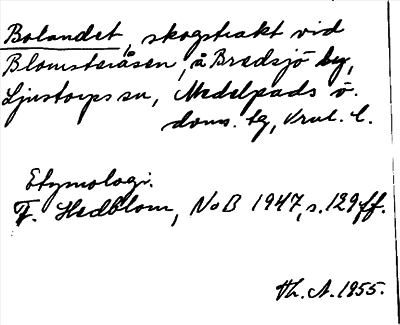 Bolandet, skogstrakt vid
Blomsteråsen, å Bredsjö by,
Ljustorps sn, Medelpads ö.
doms. tg, Vnrl. l.
Etymologi.
F. Hedblom, NoB 1947, s. 129 ff.
Th. A. 1955.